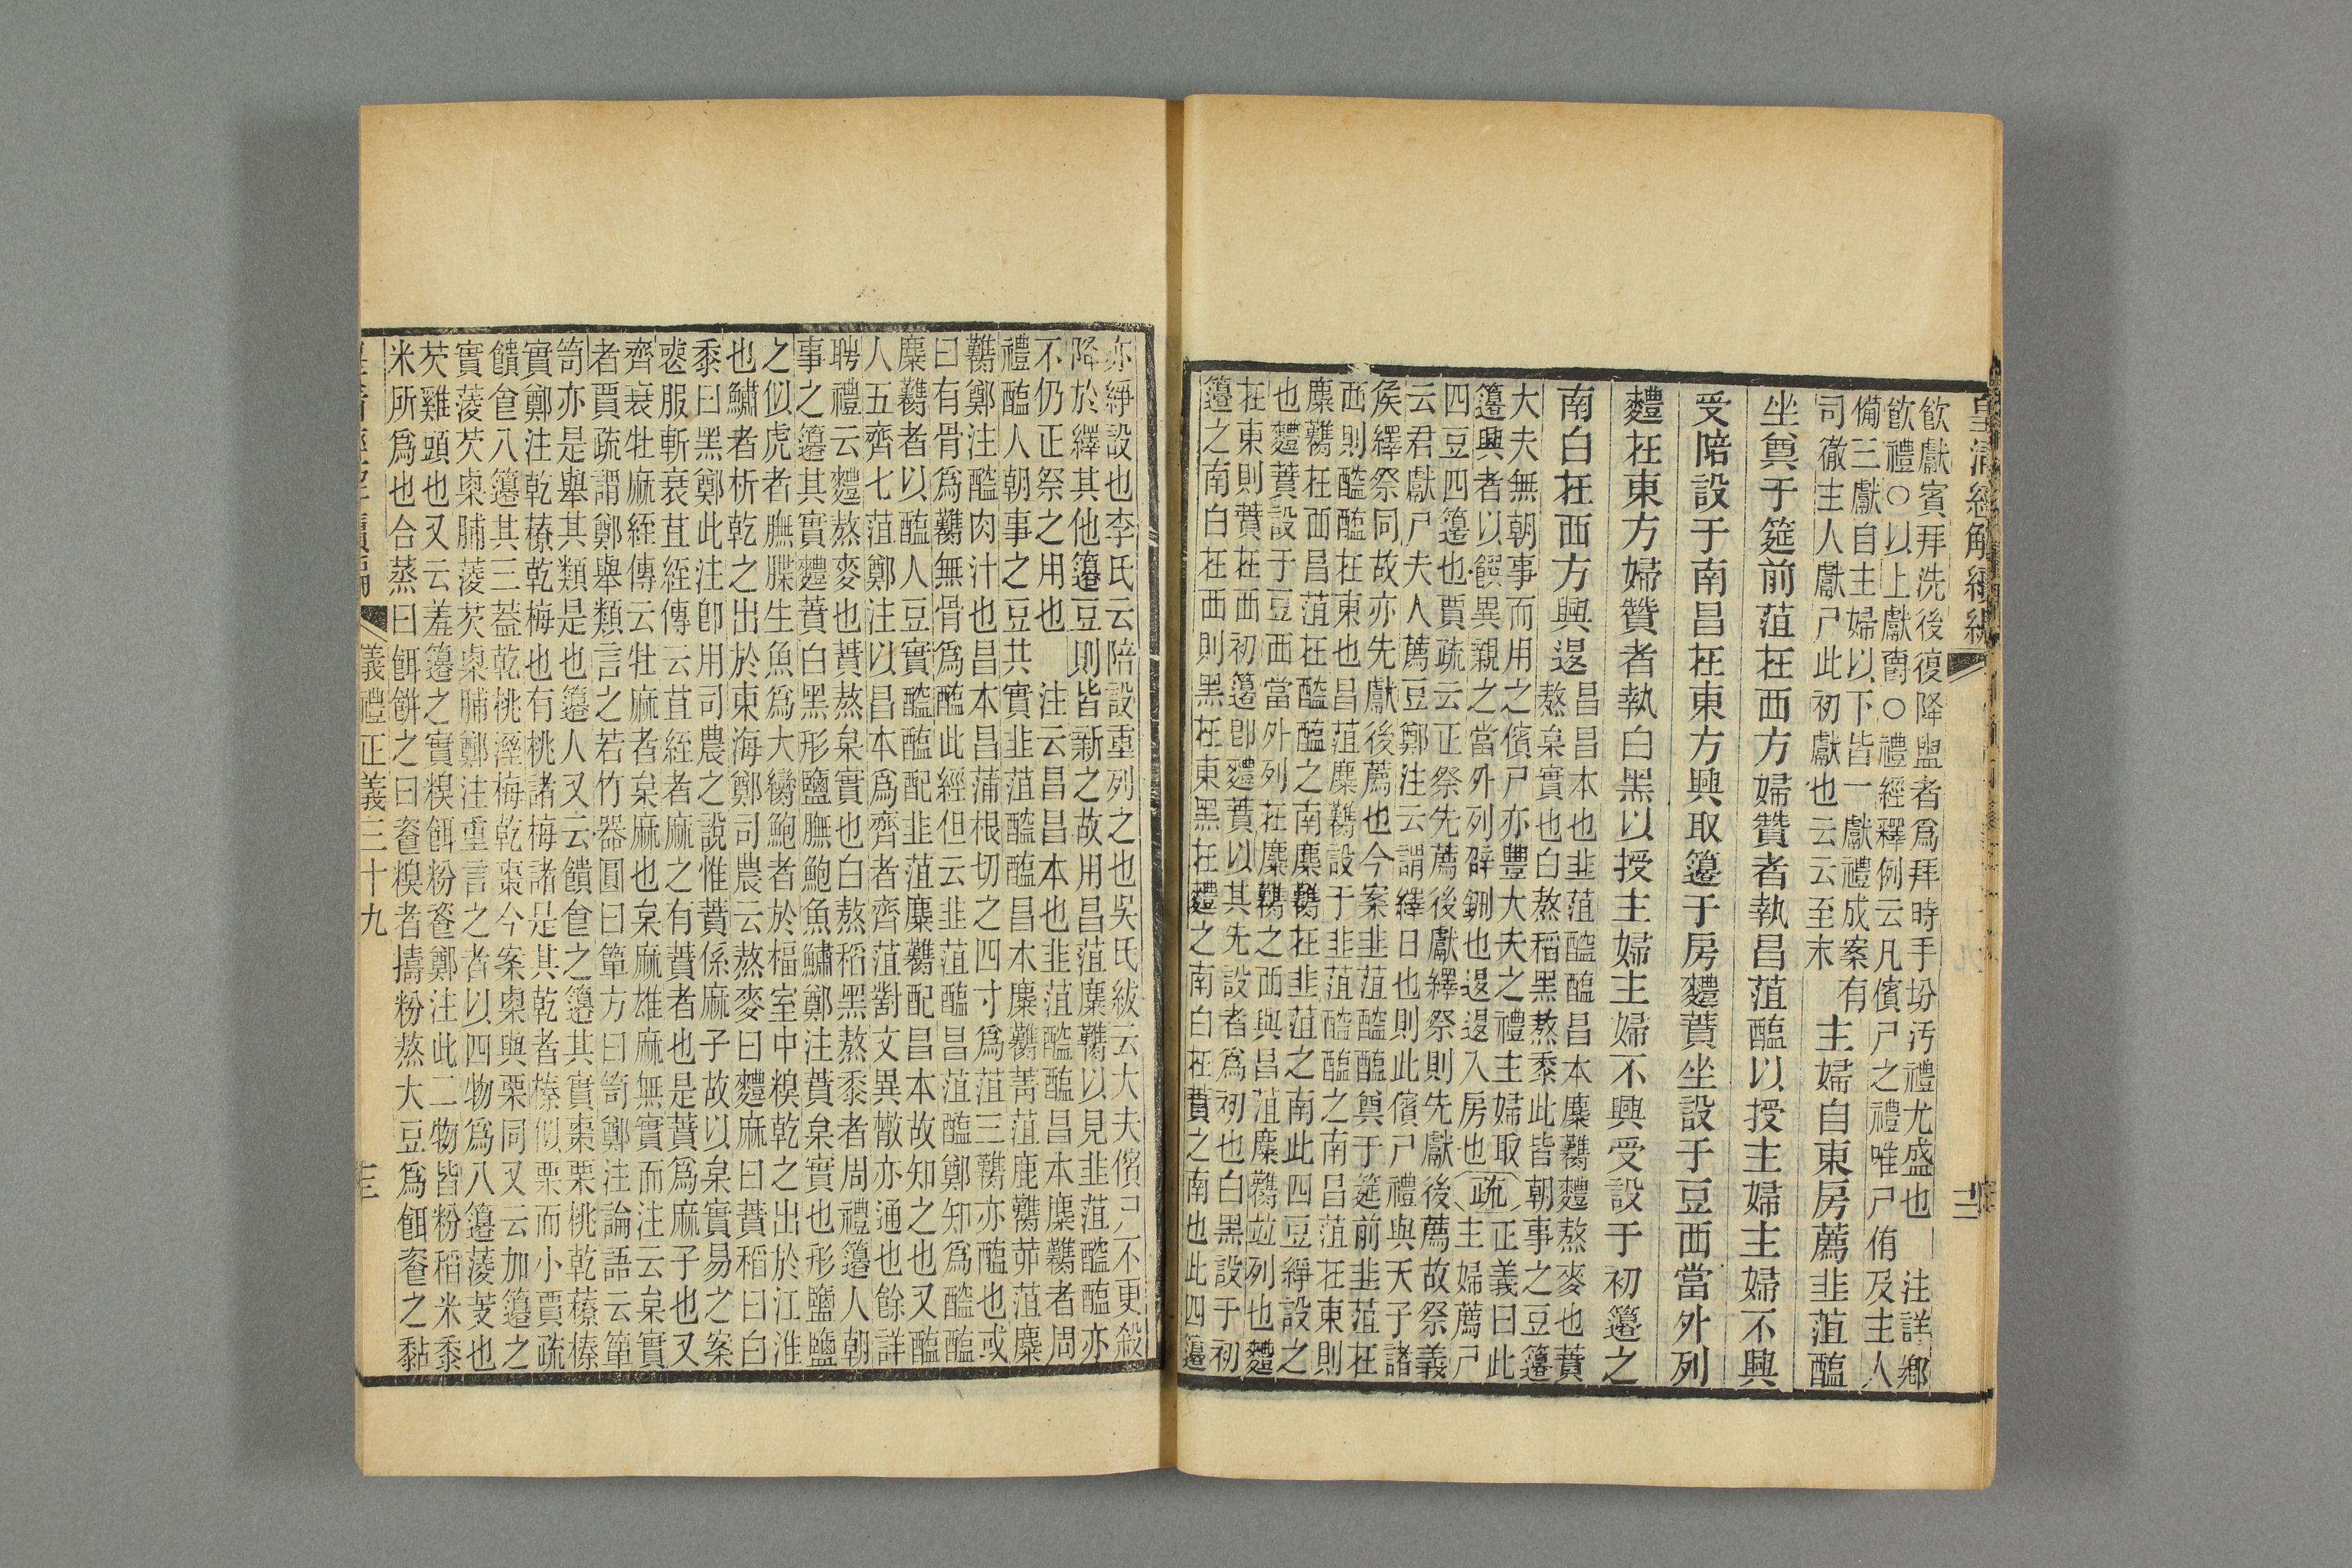 飲獻賓拜洗後復降盥者爲拜時手坋汚禮尤盛也　注詳鄉
飲禮○以上獻　○禮經釋例云凡儐尸之禮唯尸侑及主人
備三獻自主婦以下皆一獻禮成案有
司徹主人獻尸此初獻也云云至末
主婦自東房薦韭菹醢
坐奠于筵前菹在西方婦贊者執昌菹醢以授主婦主婦不興
受陪設于南昌在東方興取籩于房麷蕡坐設于豆西當外列
麷在東方婦贊者執白黑以授主婦主婦不興受設于初籩之
南白在西方興退
昌昌本也韭菹醓醢昌本麋臡麷熬麥也蕡
熬枲實也白熬稻黑熬黍此皆朝事之豆籩
大夫無朝事而用之儐尸亦豐大夫之禮主婦取
籩興者以饌異親之當外列辟鉶也退退入房也
疏
正義曰此
主婦薦尸
四豆四籩也賈疏云正祭先薦後獻繹祭則先獻後薦故祭義
云君獻尸夫人薦豆鄭注云謂繹日也則此儐尸禮與天子諸
矦繹祭同故亦先獻後薦也今案韭菹醓醢奠于筵前韭菹在
西則醓醢在東也昌菹麋臡設于韭菹醓醢之南昌菹在東則
麋臡在西昌菹在醓醢之南麋臡在韭菹之南此四豆綪設之
也麷蕡設于豆西當外列在麋臡之西與昌菹麋臡竝列也麷
在東則蕡在西初籩卽麷蕡以其先設者爲初也白黑設于初
籩之南白在西則黑在東黑在麷之南白在蕡之南也此四籩
亦綪設也李氏云陪設重列之也吳氏紱云大夫儐尸不更殺
降於繹其他籩豆則皆新之故用昌菹麋臡以見韭菹醓醢亦
不仍正祭之用也　注云昌昌本也韭菹醓醢昌本麋臡者周
禮醢人朝事之豆共實韭菹醓醢昌本麋臡菁菹鹿臡茆菹麋
臡鄭注醓肉汁也昌本昌蒲根切之四寸爲菹三臡亦醢也或
曰有骨爲臡無骨爲醢此經但云韭菹醢昌菹醢鄭知爲醓醢
麋臡者以醢人豆實醓醢配韭菹麋臡配昌本故知之也又醢
人五齊七菹鄭注以昌本爲齊者齊菹對文異散亦通也餘詳
聘禮云麷熬麥也蕡熬枲實也白熬稻黑熬黍者周禮籩人朝
事之籩其實麷蕡白黑形鹽膴鮑魚鱐鄭注蕡枲實也形鹽鹽
之似虎者膴䐑生魚爲大臠鮑者於楅室中糗乾之出於江淮
也鱐者析乾之出於東海鄭司農云熬麥曰麷麻曰蕡稻曰白
黍曰黑鄭此注卽用司農之說惟蕡係麻子故以枲實易之案
喪服斬衰苴絰傳云苴絰者麻之有蕡者也是蕡爲麻子也又
齊衰牡麻絰傳云牡麻者枲麻也枲麻雄麻無實而注云枲實
者賈疏謂鄭舉類言之若竹器圓曰簞方曰笥鄭注論語云簞
笥亦是舉其類是也籩人又云饋食之籩其實棗栗桃乾䕩榛
實鄭注乾䕩乾梅也有桃諸梅諸是其乾者榛似栗而小賈疏
饋食八籩其三蓋乾桃溼梅乾棗今案㮚與栗同又云加籩之
實蔆芡㮚脯蔆芡㮚脯鄭注重言之者以四物爲八籩蔆芰也
芡雞頭也又云羞籩之實糗餌粉餈鄭注此二物皆粉稻米黍
米所爲也合蒸曰餌餅之曰餈糗者擣粉熬大豆爲餌餈之黏
儀禮正義三十九